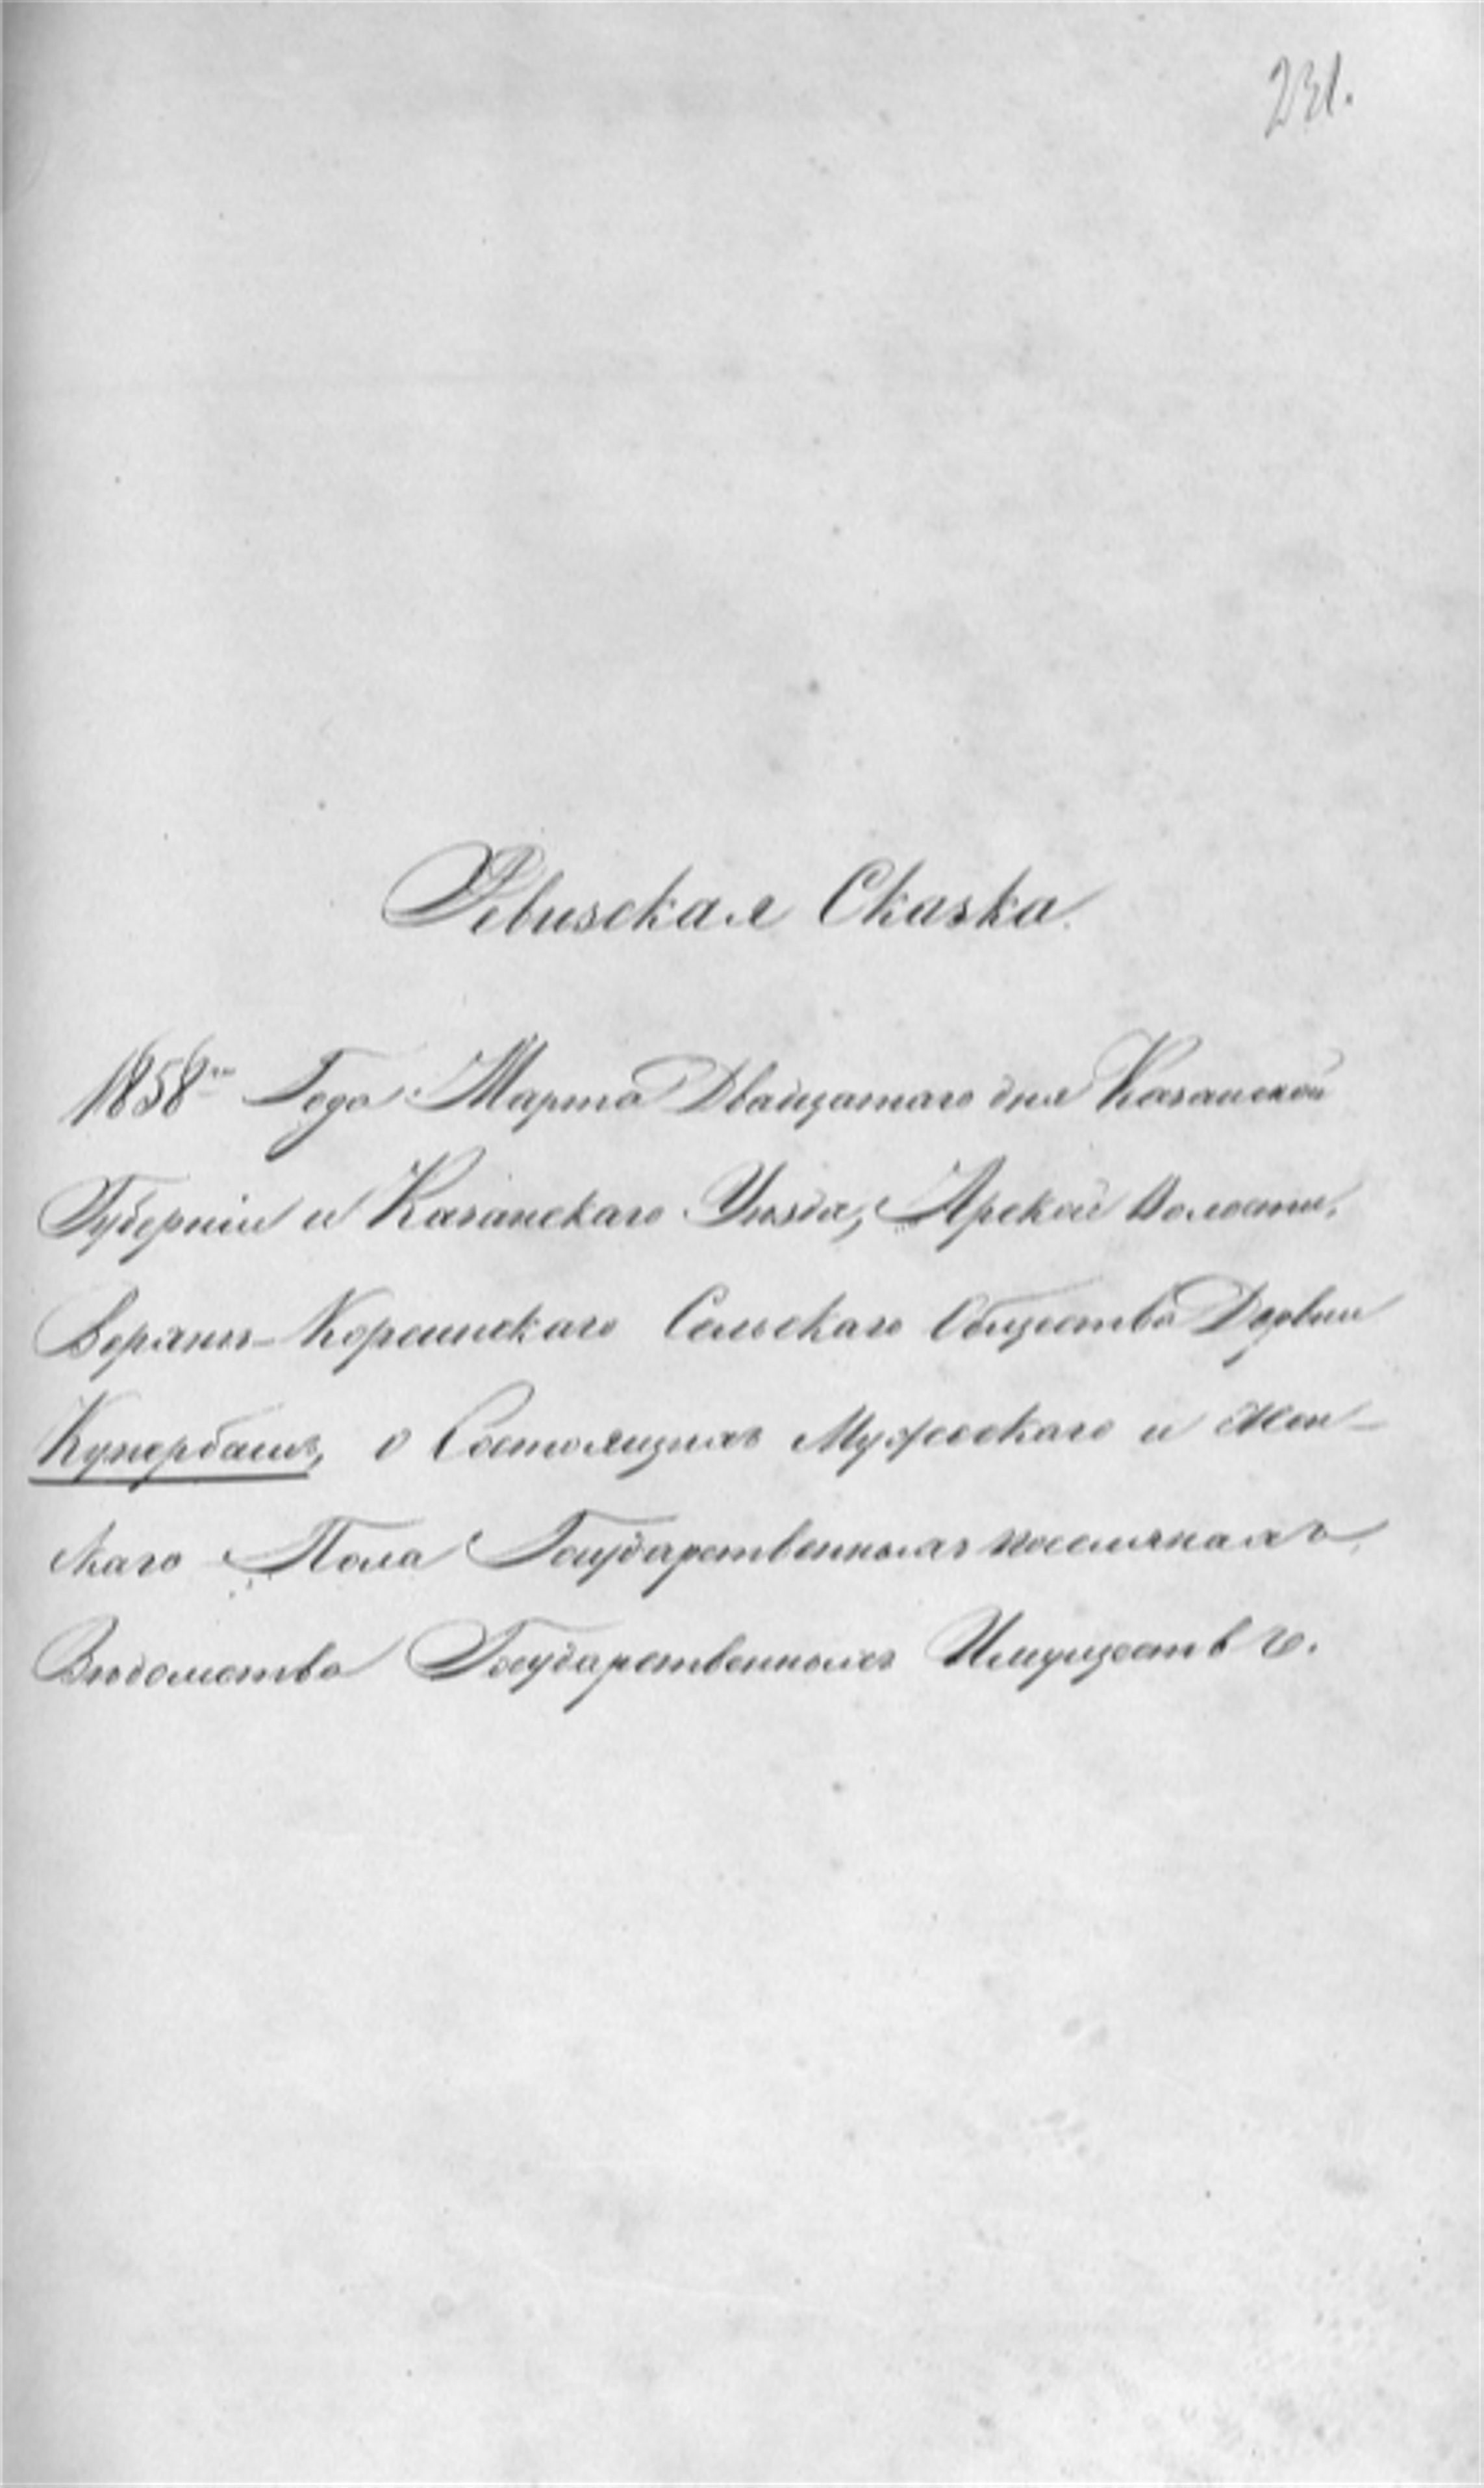 231.
Ревизская Сказка.
1858го Года Марта Двадцатаго дня Казанской
Губерніи и Казанскаго Уѣзда, Арской Волости,
Верхне-Корсинскаго Сельскаго Общества Деревни
Купербашъ, о Состоящихъ Мужескаго и Жен-
скаго Пола Государственныхъ поселянахъ
Вѣдомства Государственныхъ Имуществъ.